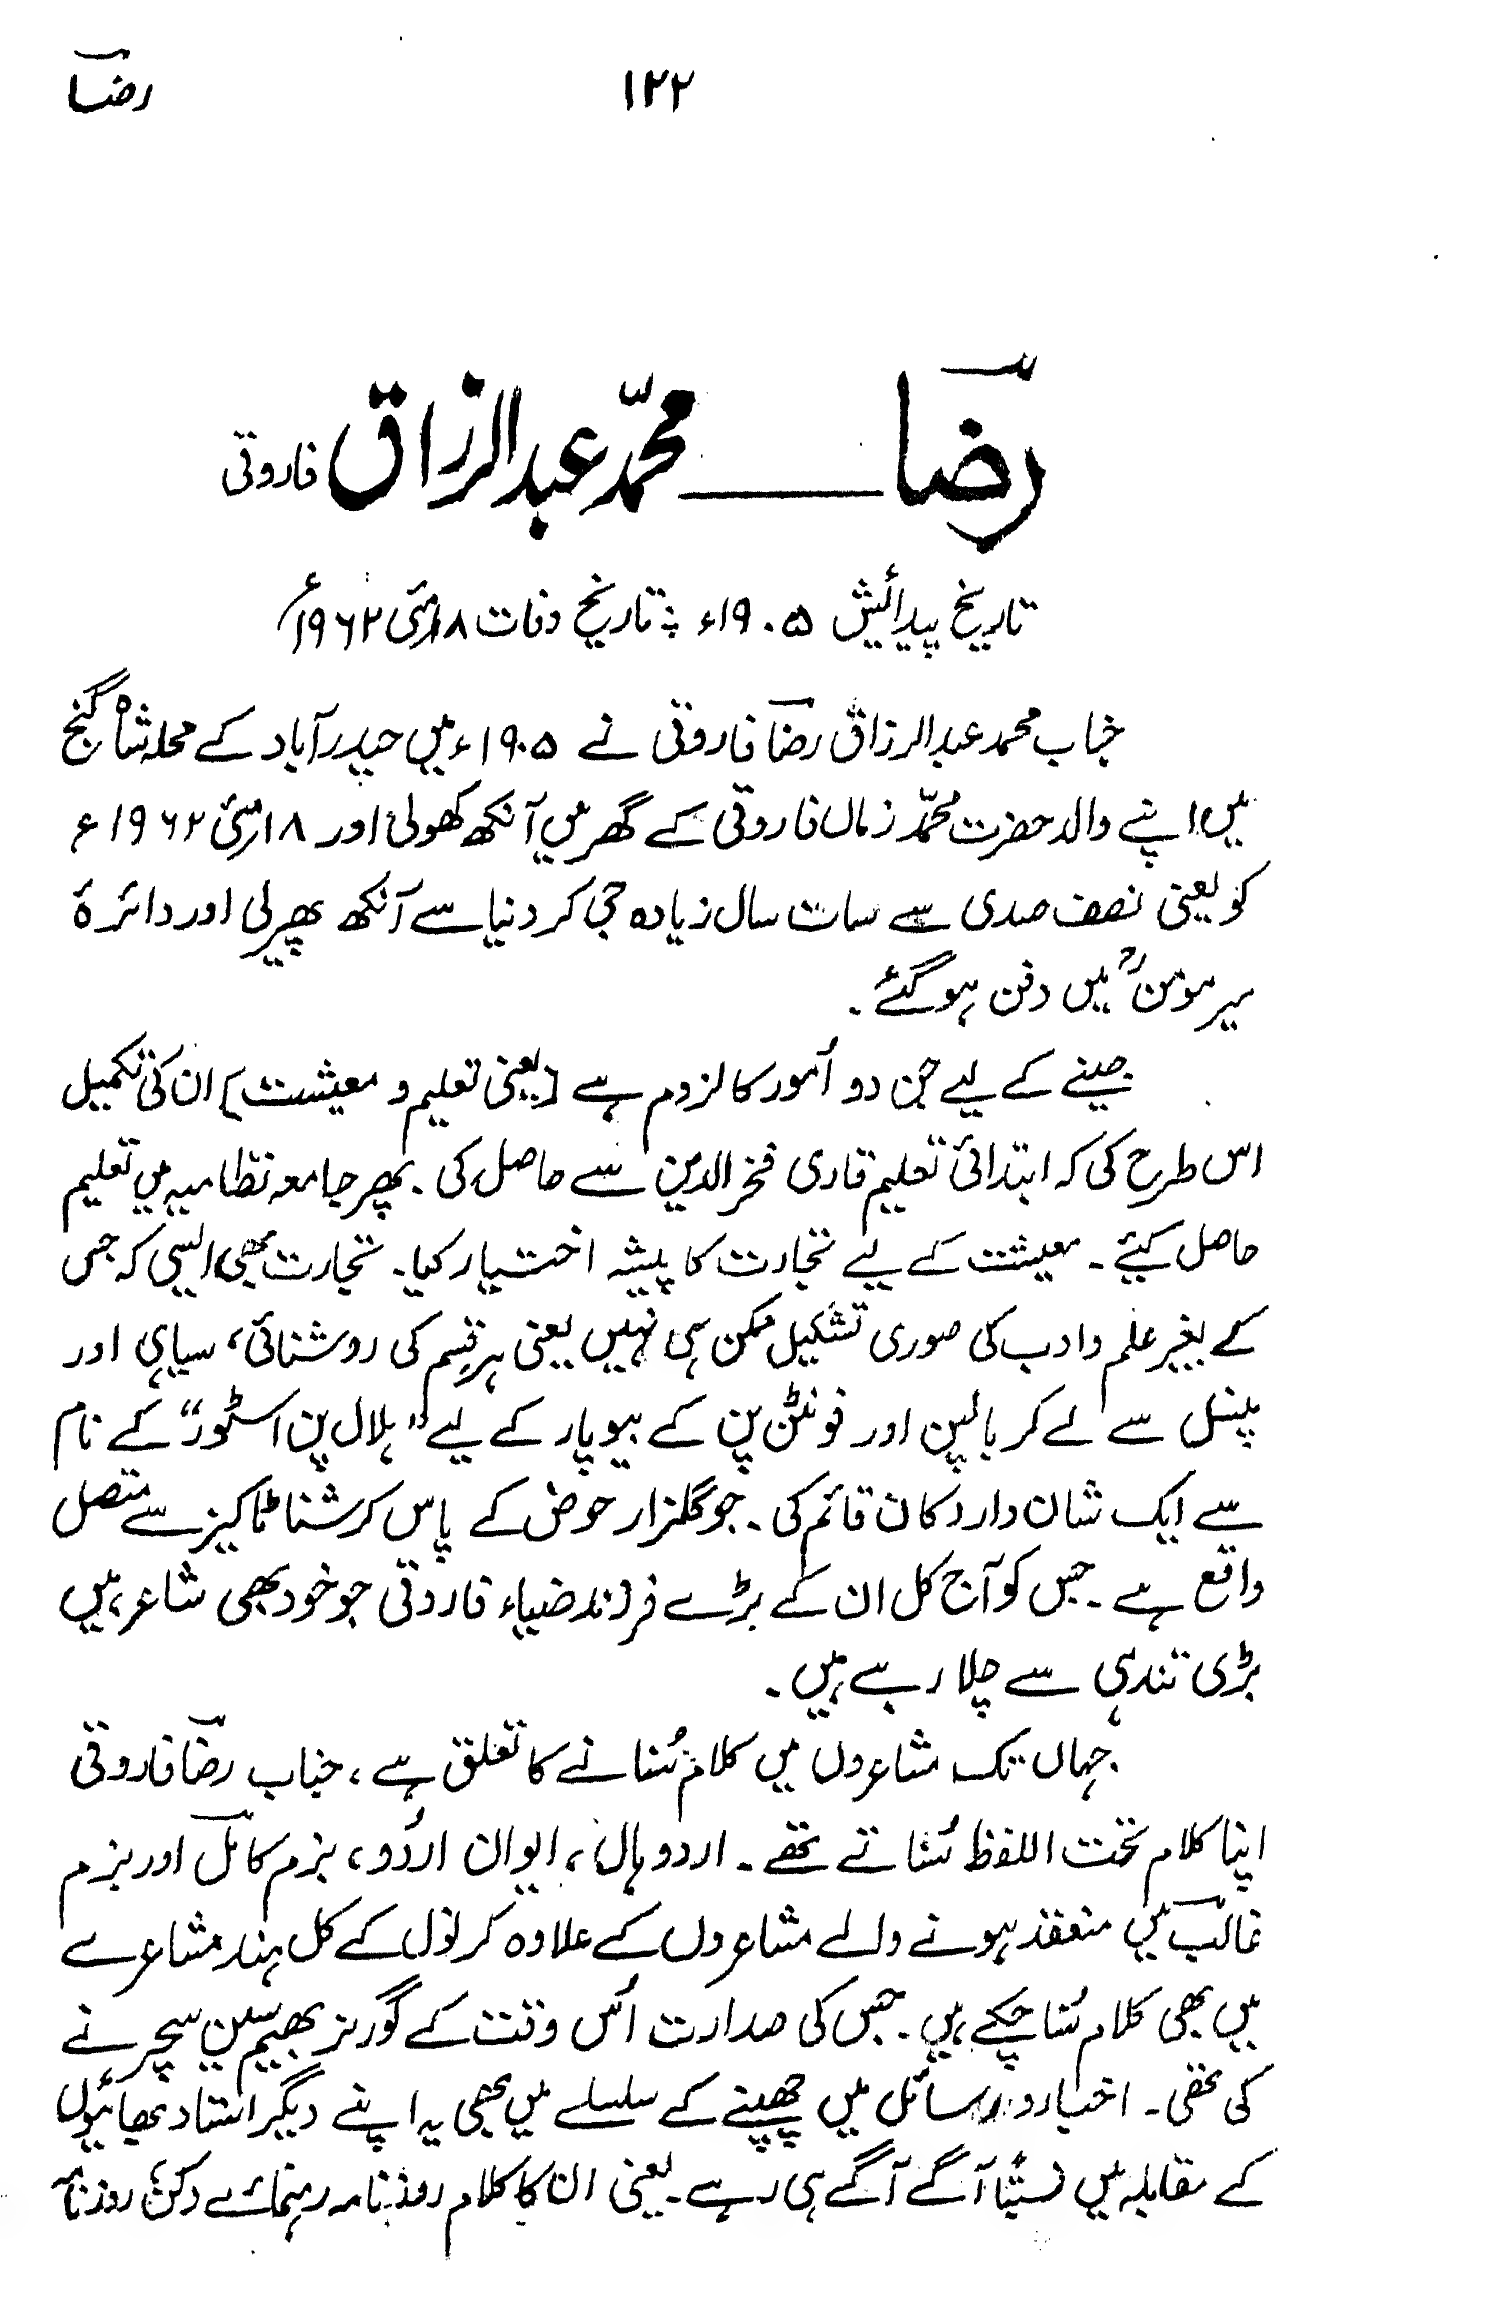 رضاؔ
۱۲۲
رضاؔ ـــــ محمّد عبدالرزاق فاروقی
تاریخ پیدائیش ۱۹۰۵ء ÷ تاریخ وفات ۱۸ مئی ۱۹۶۲ء
جناب محمد عبدالرزاق رضاؔ فاروقی نے ۱۹۰۵ء میں حیدرآباد کے محلہ شاہ گنج
میں اپنے والد حضرت محمّد زماں فاروقی کے گھر میں آنکھ کھولی اور ۱۸ مئی ۱۹۶۲ء
کو یعنی نصف صدی سے سات سال زیادہ جی کر دنیا سے آنکھ پھیر لی اور دائرۂ
میر مومنؒ میں دفن ہو گئے ۔
جینے کے لیے جن دو اُمور کا لزوم ہے [یعنی تعلیم و معیشت] ان کی تکمیل
اس طرح کی کہ ابتدائی تعلیم قاری فخر الدین سے حاصل کی ۔ پھر جامعہ نظامیہ میں تعلیم
حاصل کیئے ۔ معیشت کے لیے تجارت کا پیشہ اختیار کیا ۔ تجارت بھی ایسی کہ جس
کے بغیر علم و ادب کی صوری تشکیل ممکن ہی نہیں یعنی ہر قسم کی روشنائی، سیاہی اور
پنسل سے لے کر بالپن اور فونٹن پن کے بیوپار کے لیے "ہلال پن اسٹور" کے نام
سے ایک شان دار دکان قائم کی ۔ جو گلزار حوض کے پاس کرشنا ٹاکیز سے متصل
واقع ہے ۔ جس کو آج کل ان کے بڑے فرزند ضیاء فاروقی جو خود بھی شاعر ہیں
بڑی تندہی سے چلا رہے ہیں ۔
جہاں تک مشاعروں میں کلام سُنانے کا تعلق ہے، جناب رضاؔ فاروقی
اپنا کلام تحت اللفظ سُناتے تھے ۔ اردو ہال، ایوان اردُو، بزم کاملؔ اور بزم
غالبؔ میں منعقد ہونے والے مشاعروں کے علاوہ کرنول کے کل ہند مشاعرے
میں بھی کلام سُنا چکے ہیں ۔ جس کی صدارت اُس وقت کے گورنر بھیم سین سچر نے
کی تھی ۔ اخبار و رسائل میں چھپنے کے سلسلے میں بھی یہ اپنے دیگر استاد بھائیوں
کے مقابلہ میں نسبتاً آگے آگے ہی رہے ۔ یعنی ان کا کلام روزنامہ رہنمائے دکن، روزنامہ